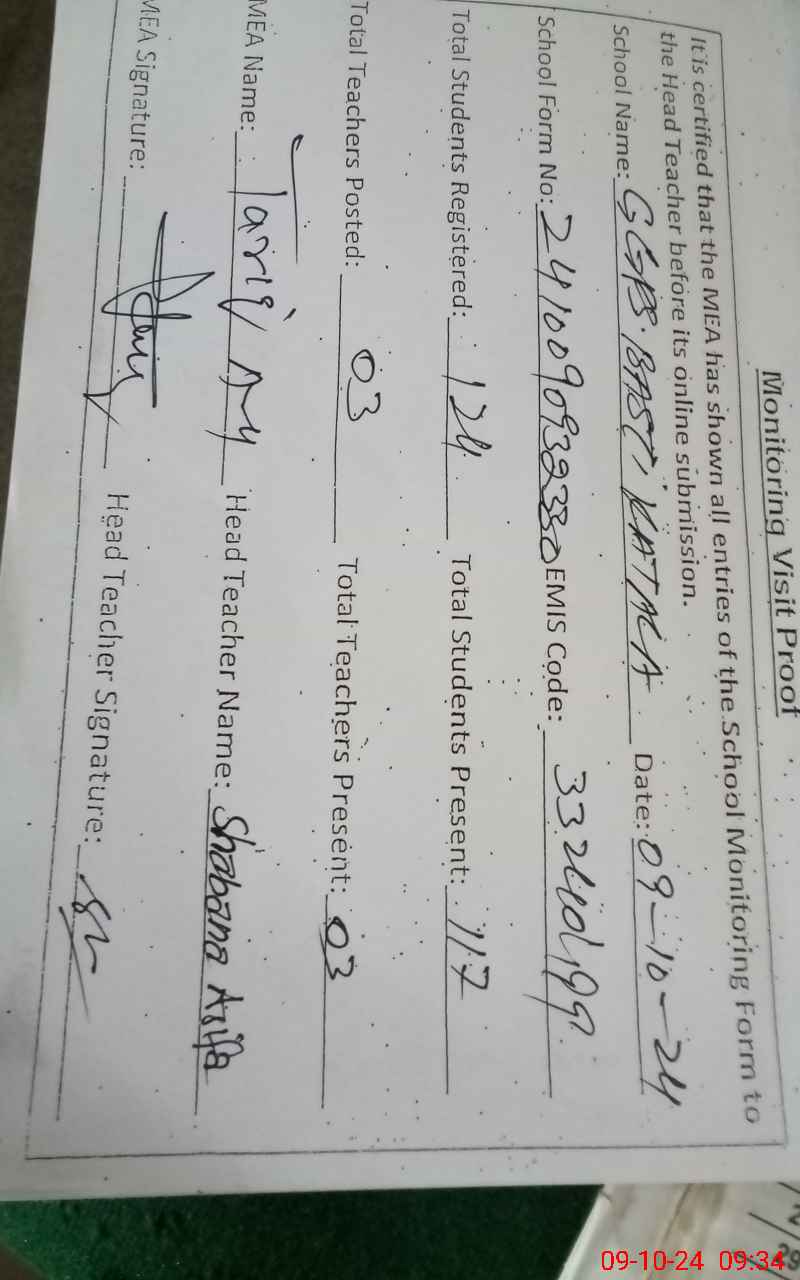 Monitoring Visit Proof
It is certified that the MEA has shown all entries of the School Monitoring Form to
the Head Teacher before its online submission.
School Name: GGPS. BASTI KATMA Date: 09-10-24
School Form No: EMIS Code:
Total Students Registered: 124 Total Students Present: 117
Total Teachers Posted: 03 Total Teachers Present: 03
MEA Name: Tariq Head Teacher Name: Shabana
MEA Signature: Head Teacher Signature:
09-10-24 09:34